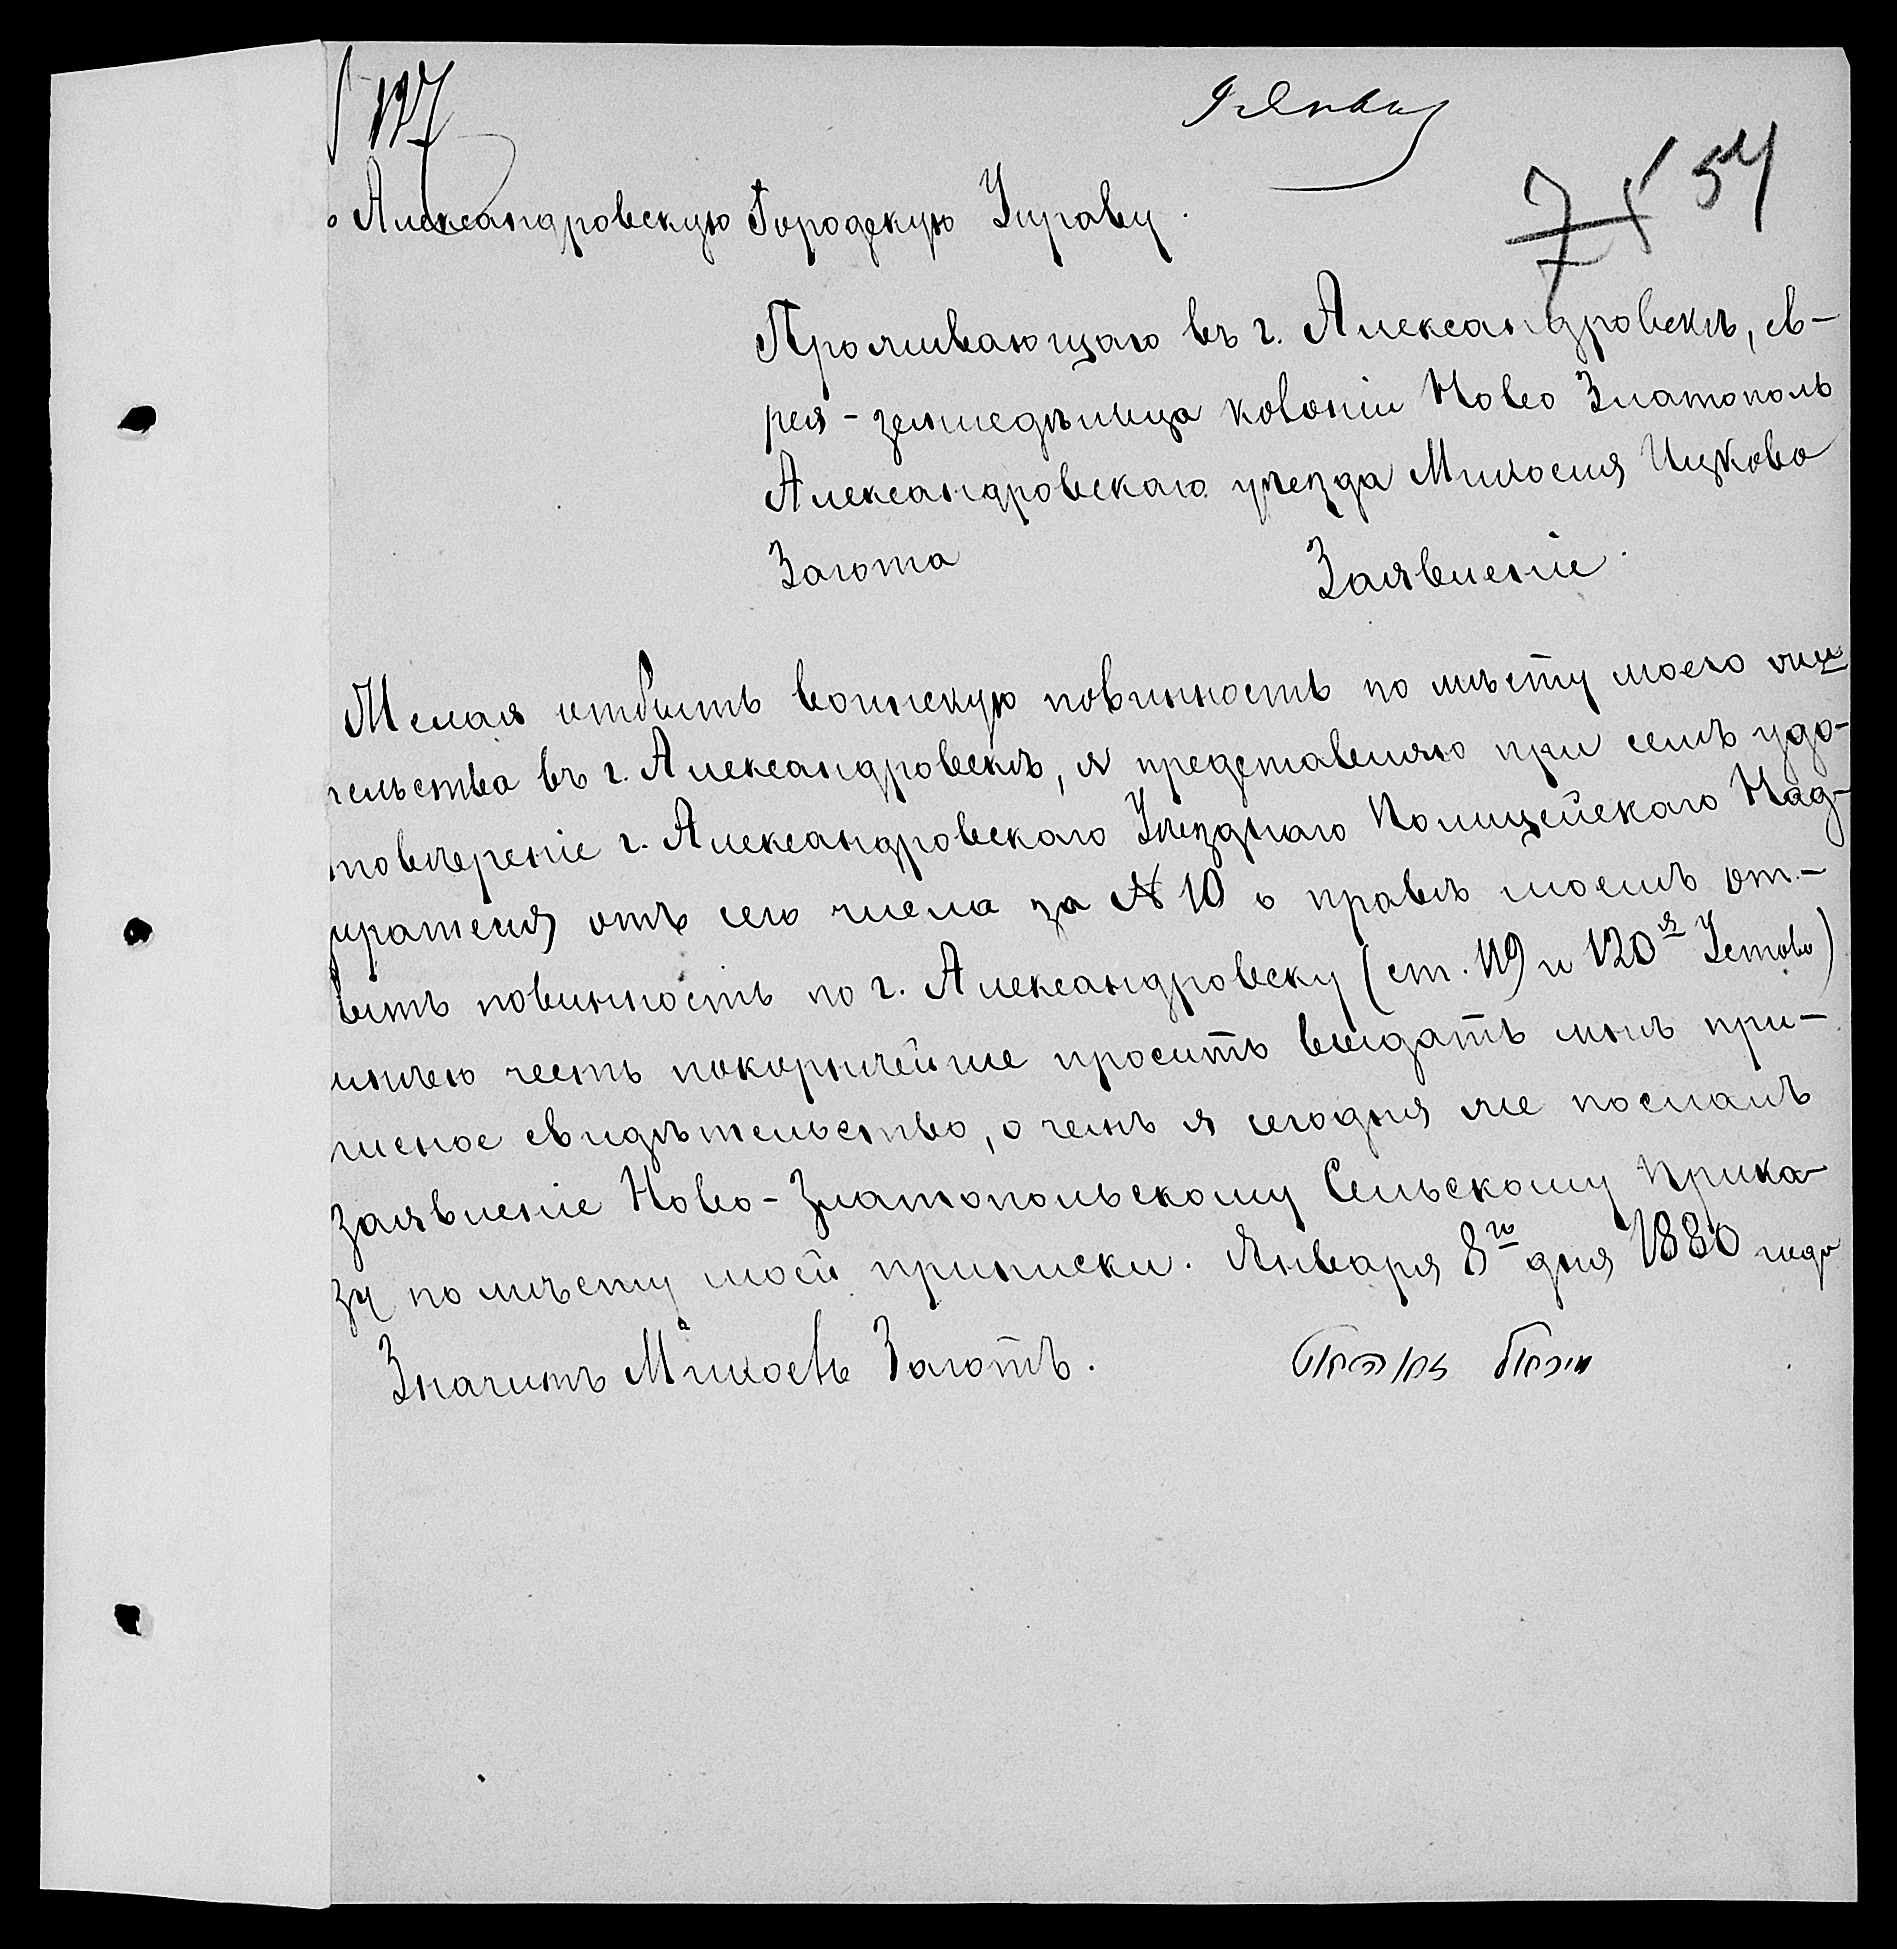 127
9 Январ
7 54
Александровскую Городскую Управу.
Проживающаго въ г. Александровскѣ, ев-
рея-земледѣльца колоніи Ново Златополь
Александровскаго уѣзда Михоеля Ицкова
Заготa
Заявленіе.
Желая отбыть воинскую повинность по мѣсту моего жи
тельства въ г. Александровскѣ, я представляю при семъ удо-
стовѣреніе г. Александровскаго Уѣзднаго Полицейскаго Над-
зирателя отъ сего числа за № 10 о правѣ моемъ от-
быть повинность по г. Александровску (ст. 119 и 120я Устава)
имѣю честь покорнѣйше просить выдать мнѣ при-
писное свидѣтельство, о чемъ я сегодня же послалъ
заявленіе Ново-Златопольскому Сельскому Прика-
зу по мѣсту моей приписки. Января 8го дня 1880 года
Значитъ Михоель Заготъ.